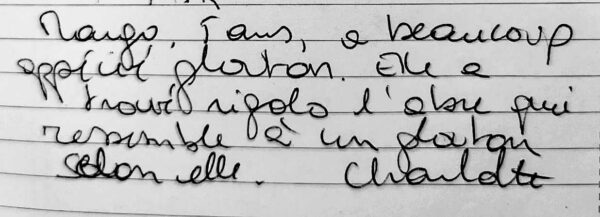 Margo, 5 ans, a beaucoup
apprécié platon. Elle a
trouvé rigolo l'arbre qui
ressemble à un platon
selon elle. Charlotte